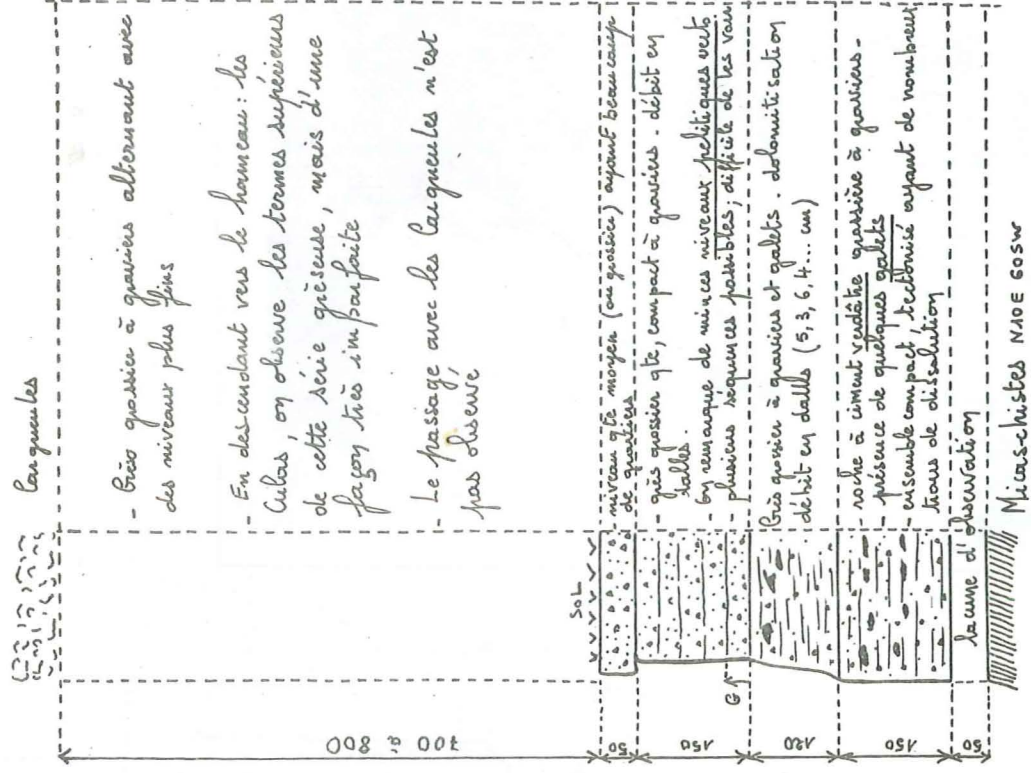 Cargneules
- Grès grossier à graviers alternant avec
des niveaux plus fins
- En descendant vers le hameau: les
Culas, on observe les termes supérieurs
de cette série grèseuse, mais d'une
façon très imparfaite
- Le passage avec les Cargneules n'est
pas observé,
700 à 800
SOL
50
- niveau qte moyen (ou grossier) ayant beaucoup
de graviers
150
- grès grossier qte, compact à graviers. débit en
dalles.
- on remarque de minces niveaux pelitiques verts
plusieurs séquences possibles; difficile de les voir
G
120
Grès grossier à graviers et galets. dolomitisation
débit en dalles (5, 3, 6, 4... cm)
150
- roche à ciment verdâtre grossière à graviers -
- présence de quelques galets
- ensemble compact, tectonisé ayant de nombreux
traus de dissolution
50
lacune d'observation
Micaschistes N10E 60SW